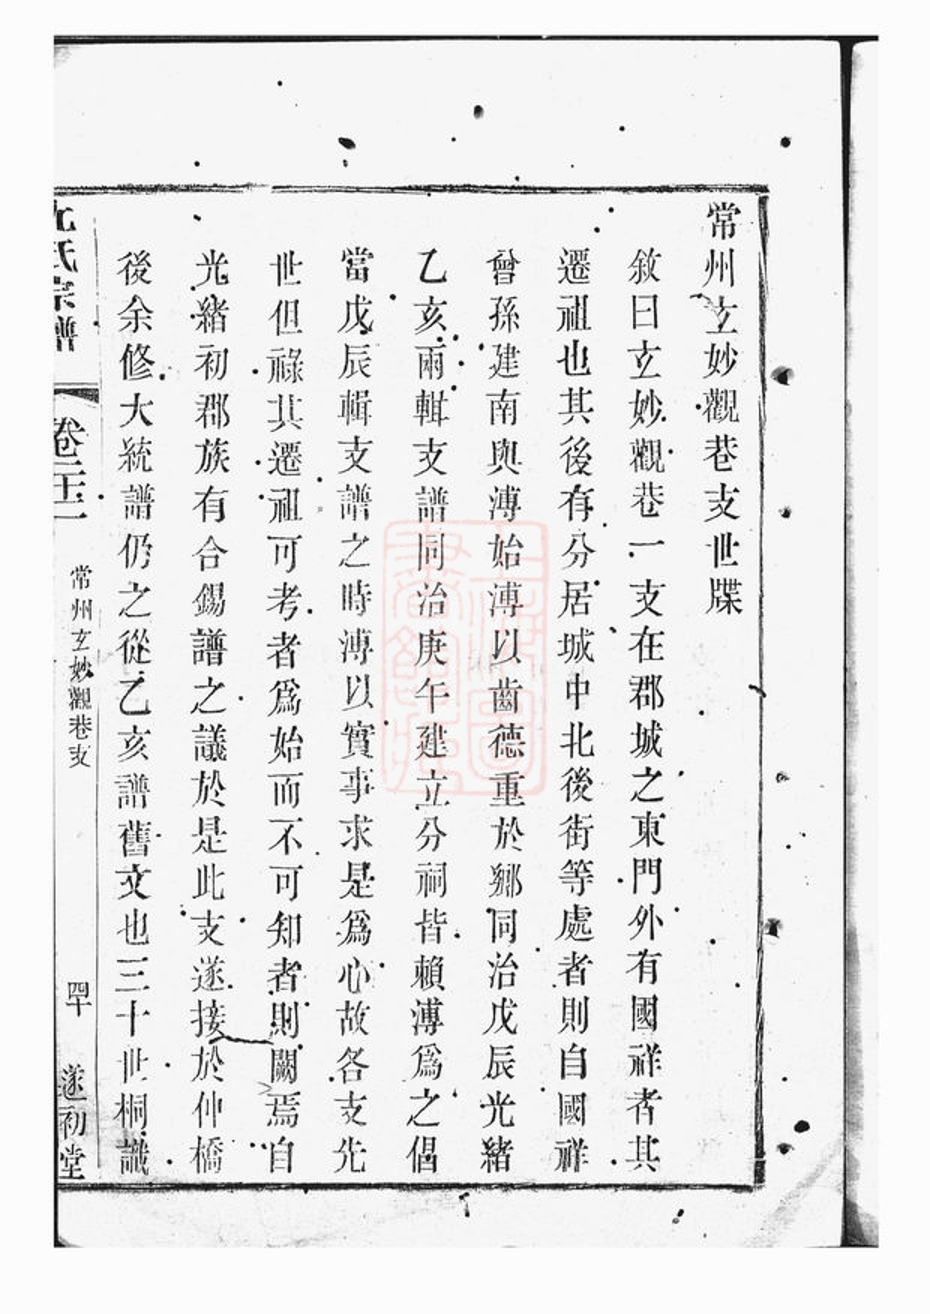 常州玄妙觀巷支世牒
敘曰玄妙觀巷一支在郡城之東門外有國祥者其
遷祖也其後有分居城中北後街等處者則自國祥
曾孫建南與溥始溥以齒德重於鄉同治戊辰光緒
乙亥兩輯支譜同治庚午建立分祠皆賴溥爲之倡
當戊辰輯支譜之時溥以實事求是爲心故各支先
世但祿其遷祖可考者爲始而不可知者則闕焉自
光緒初郡族有合錫譜之議於是此支遂接於仲橋
後余修大統譜仍之從乙亥譜舊文也三十世桐識
氏宗譜
卷二
常州玄妙觀巷支
四十
遂初堂